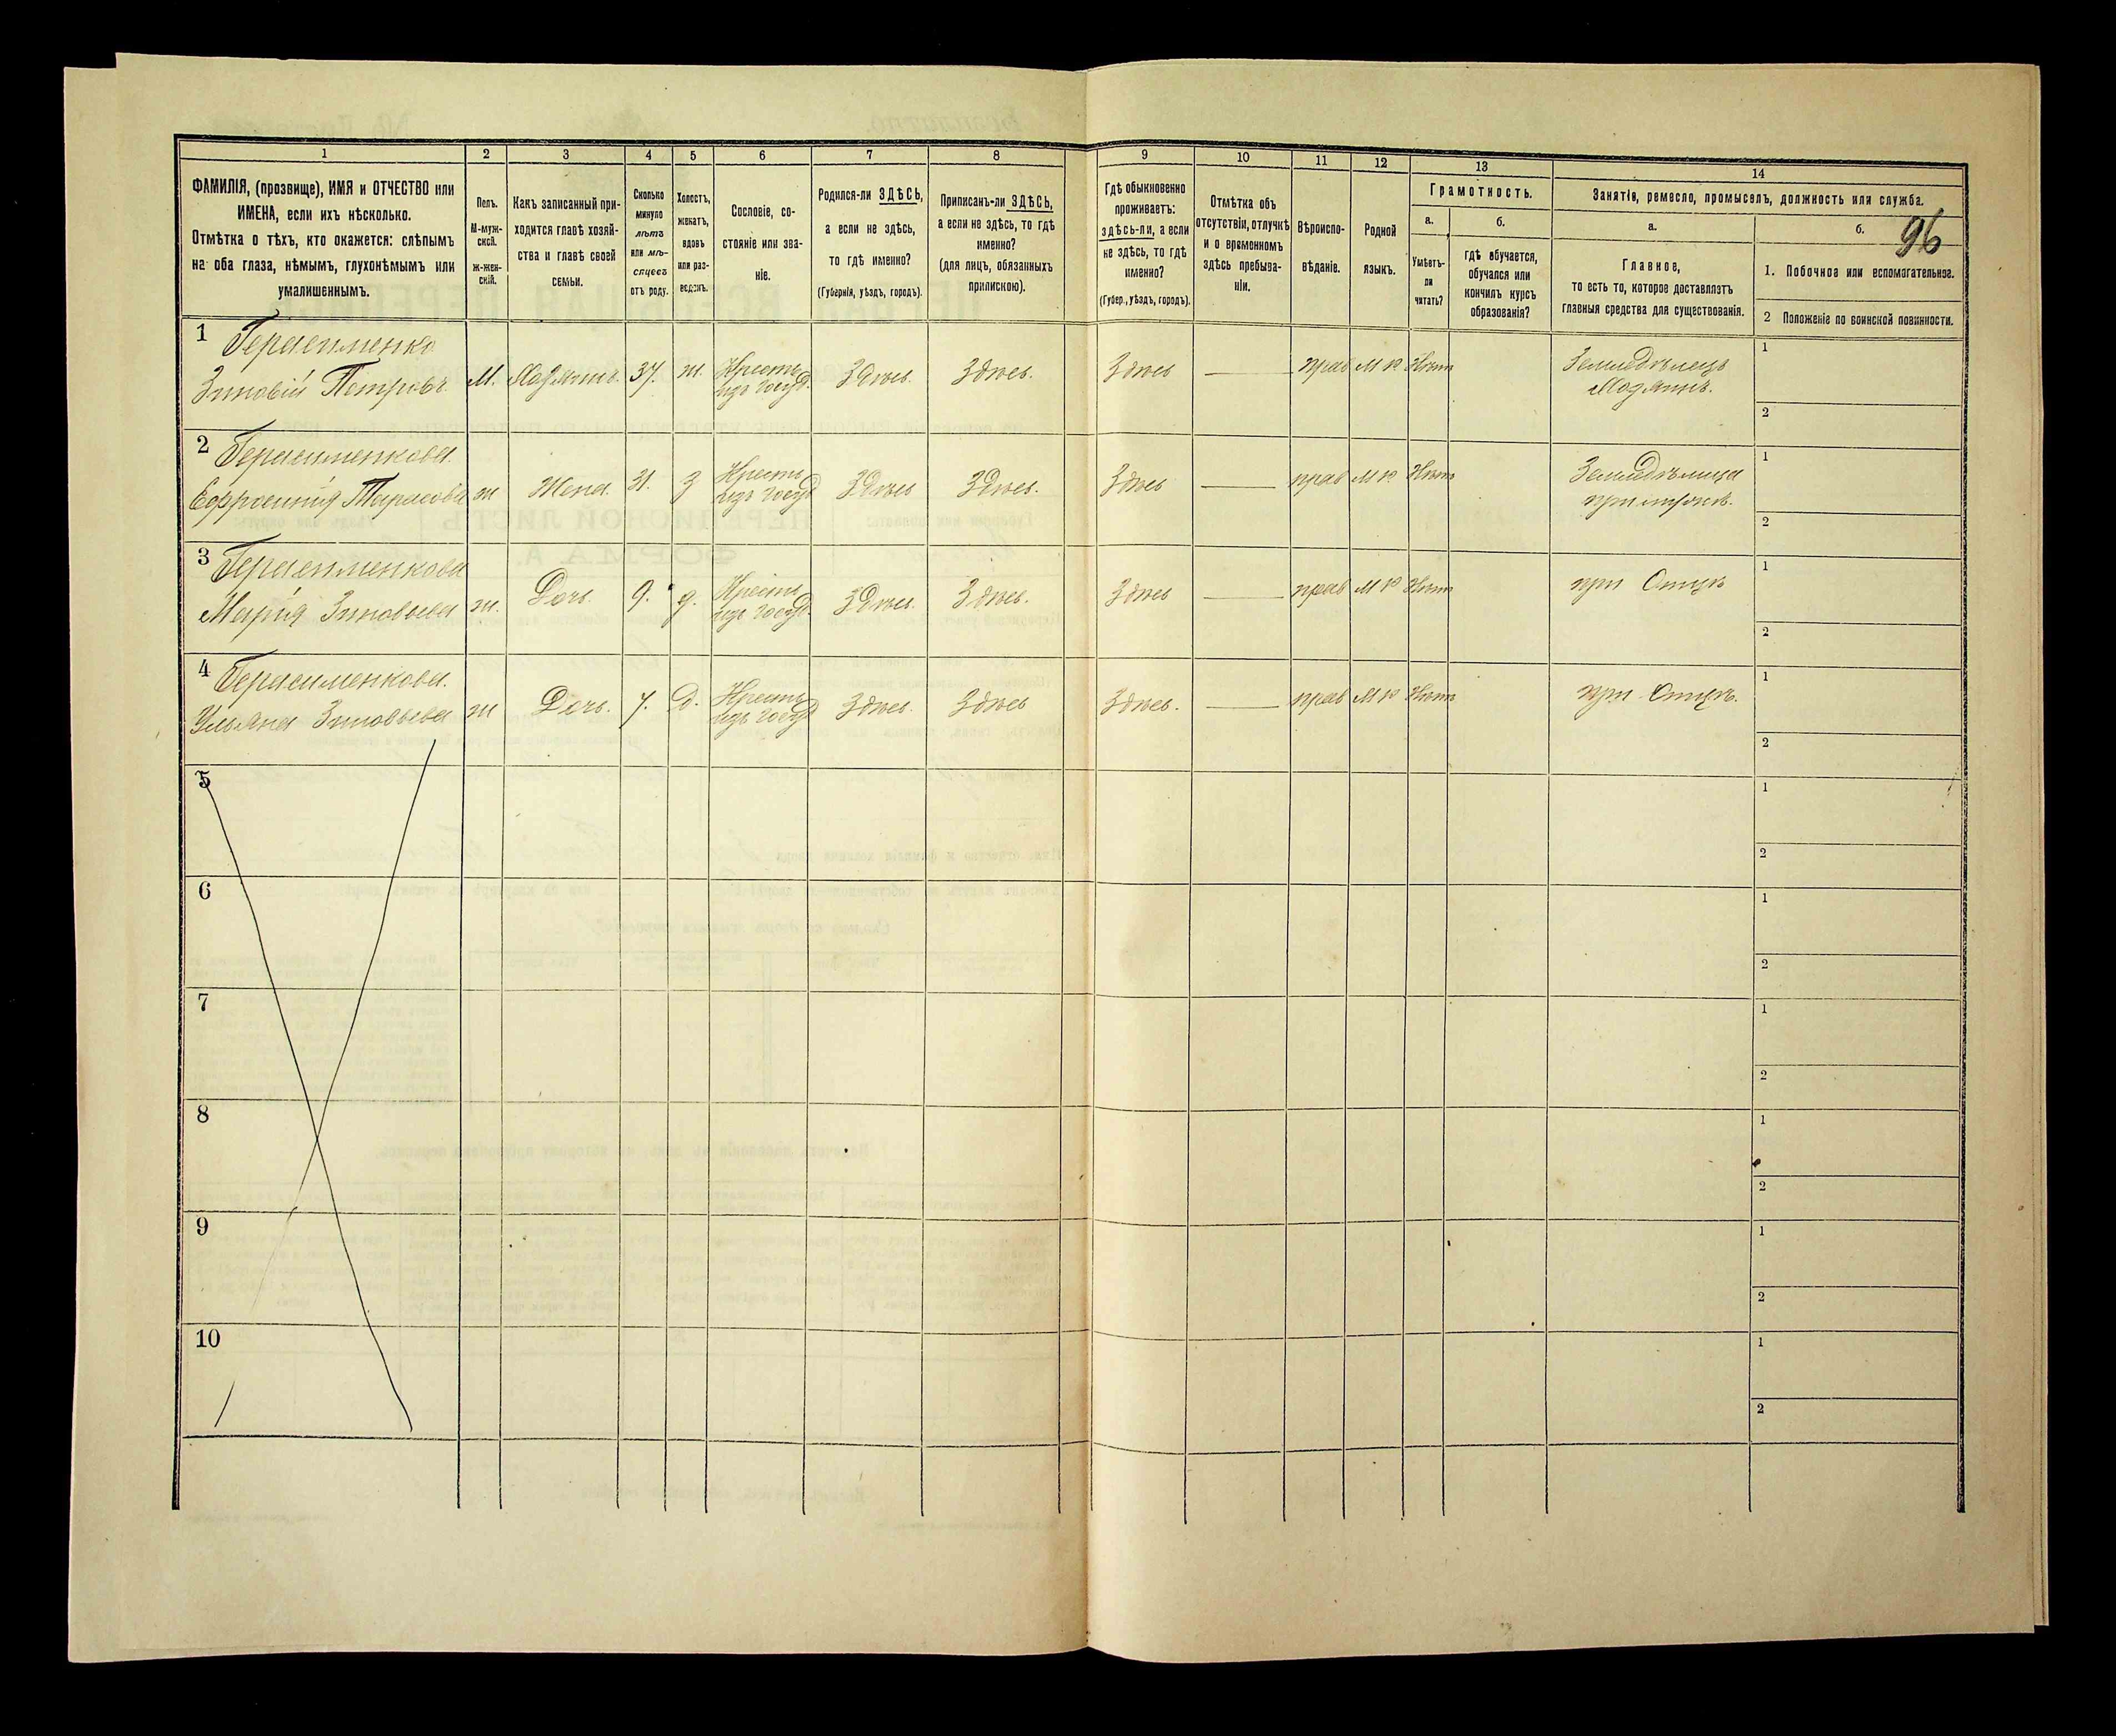 1 2 3 4 5 6 7 8 9 10 11 12 13 14
ФАМИЛІЯ, (прозвище), ИМЯ и ОТЧЕСТВО или
ИМЕНА, если ихъ нѣсколько.
Отмѣтка о тѣхъ, кто окажется: слѣпымъ
на оба глаза, нѣмымъ, глухонѣмымъ или
умалишеннымъ.
Полъ.
М-муж-
ской.
ж-жен-
скій.
Какъ записанный при-
ходится главѣ хозяй-
ства и главѣ своей
семьи.
Сколько
минуло
лѣтъ
или мѣ-
сяцевъ
отъ роду.
Холостъ,
женатъ,
вдовъ
или раз-
веденъ.
Сословіе, со-
стояніе или зва-
ніе.
Родился-ли ЗДѢСЬ,
а если не здѣсь,
то гдѣ именно?
(Губернія, уѣздъ, городъ).
Приписанъ-ли ЗДѢСЬ,
а если не здѣсь, то гдѣ
именно?
(для лицъ, обязанныхъ
припискою).
Гдѣ обыкновенно
проживаетъ:
здѣсь-ли, а если
не здѣсь, то гдѣ
именно?
(Губер., уѣздъ, городъ).
Отмѣтка объ
отсутствіи, отлучкѣ
и о временномъ
здѣсь пребыва-
ніи.
Вѣроиспо-
вѣданіе.
Родной
языкъ.
Грамотность.
а.
Умѣетъ-
ли
читать?
б.
гдѣ обучается,
обучался или
кончилъ курсъ
образованія?
Занятіе, ремесло, промыселъ, должность или служба.
а.
Главное,
то есть то, которое доставляетъ
главныя средства для существованія.
б.
96
1. Побочное или вспомогательное.
2 Положеніе по воинской повинности.
1 Герасименко
Зиновій Петровъ М. Хозяинъ. 37. ж. Крестьянинъ изъ госуд. Здѣсь. Здѣсь. Здѣсь — прав М р Нѣтъ Земледѣлецъ
Хозяинъ.
1
2
2 Герасименкова.
Ефросинія Тарасова ж Жена. 31. З Крестьян изъ госуд Здѣсь Здѣсь. Здѣсь — прав М р Нѣтъ Земледѣлица
при мужѣ.
1
2
3 Герасименкова
Марія Зиновьева ж. Дочь. 9. д. Крестьян изъ госуд. Здѣсь. Здѣсь. Здѣсь — прав М р Нѣтъ при Отцѣ
1
2
4 Герасименкова.
Ульяна Зиновьева ж Дочь. 7. Д. Крестьян изъ госуд Здѣсь. Здѣсь Здѣсь. — прав М р Нѣтъ при Отцѣ.
1
2
5
1
2
6
1
2
7
1
2
8
1
2
9
1
2
10
1
2